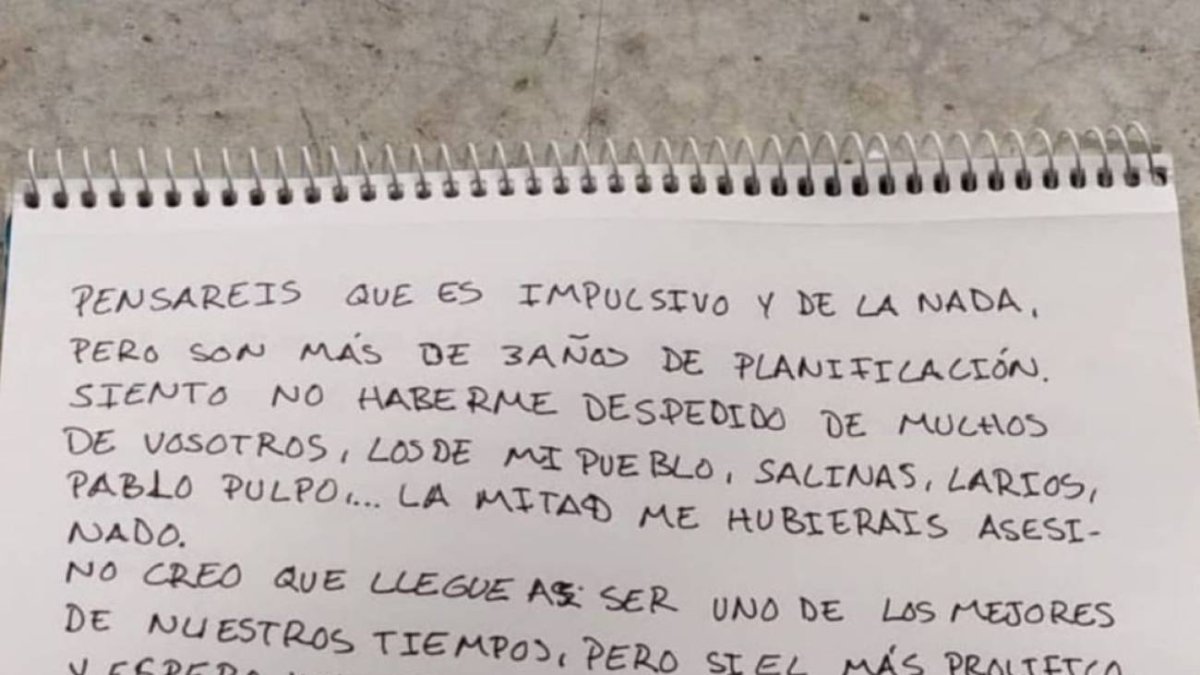 PENSAREIS QUE ES IMPULSIVO Y DE LA NADA,
PERO SON MÁS DE 3 AÑOS DE PLANIFICACIÓN.
SIENTO NO HABERME DESPEDIDO DE MUCHOS
DE VOSOTROS, LOS DE MI PUEBLO, SALINAS, LARIOS,
PABLO PULPO,... LA MITAD ME HUBIERAIS ASESI-
NADO.
NO CREO QUE LLEGUE A SER UNO DE LOS MEJORES
DE NUESTROS TIEMPOS, PERO SI EL MÁS PROLIFICO
Y ESPERO